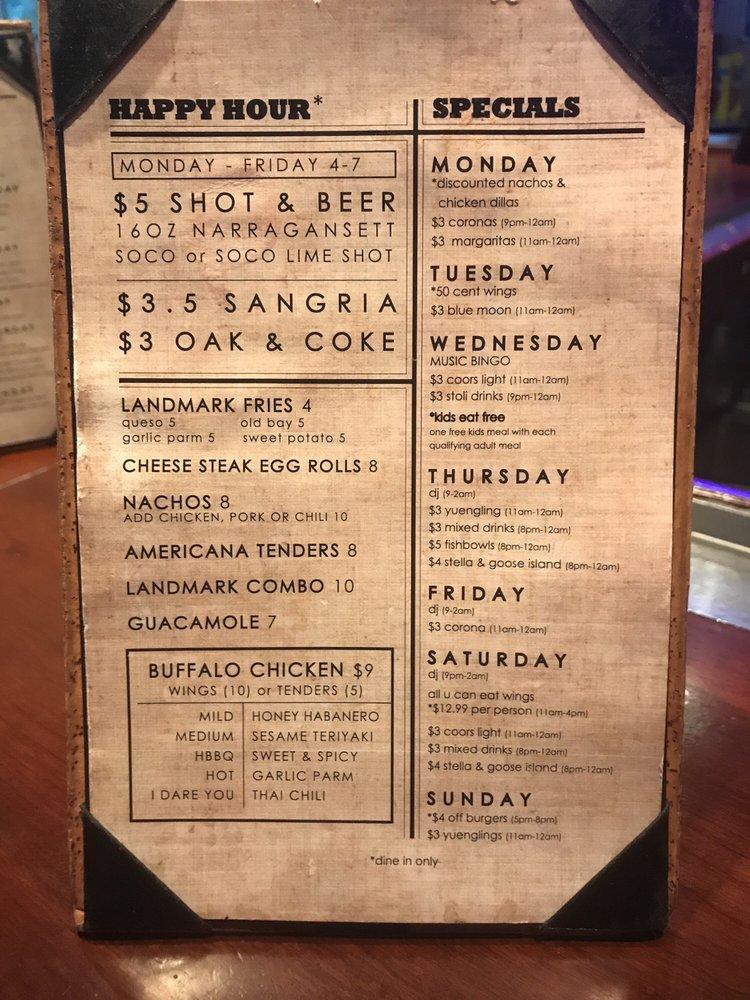 HAPPY HOUR*
MONDAY - FRIDAY 4-7
$5 SHOT & BEER
16OZ NARRAGANSETT
SOCO or SOCO LIME SHOT
$3.5 SANGRIA
$3 OAK & COKE
LANDMARK FRIES 4
queso 5 old bay 5
garlic parm 5 sweet potato 5
CHEESE STEAK EGG ROLLS 8
NACHOS 8
ADD CHICKEN, PORK OR CHILI 10
AMERICANA TENDERS 8
LANDMARK COMBO 10
GUACAMOLE 7
BUFFALO CHICKEN $9
WINGS (10) or TENDERS (5)
MILD HONEY HABANERO
MEDIUM SESAME TERIYAKI
HBBQ SWEET & SPICY
HOT GARLIC PARM
I DARE YOU THAI CHILI
SPECIALS
MONDAY
*discounted nachos &
chicken dillas
$3 coronas (9pm-12am)
$3 margaritas (11am-12am)
TUESDAY
*50 cent wings
$3 blue moon (11am-12am)
WEDNESDAY
MUSIC BINGO
$3 coors light (11am-12am)
$3 stoli drinks (9pm-12am)
*kids eat free
one free kids meal with each
qualifying adult meal
THURSDAY
dj (9-2am)
$3 yuengling (11am-12am)
$3 mixed drinks (8pm-12am)
$5 fishbowls (8pm-12am)
$4 stella & goose island (8pm-12am)
FRIDAY
dj (9-2am)
$3 corona (11am-12am)
SATURDAY
dj (9pm-2am)
all u can eat wings
*$12.99 per person (11am-4pm)
$3 coors light (11am-12am)
$3 mixed drinks (8pm-12am)
$4 stella & goose island (8pm-12am)
SUNDAY
*$4 off burgers (5pm-8pm)
$3 yuenglings (11am-12am)
*dine in only